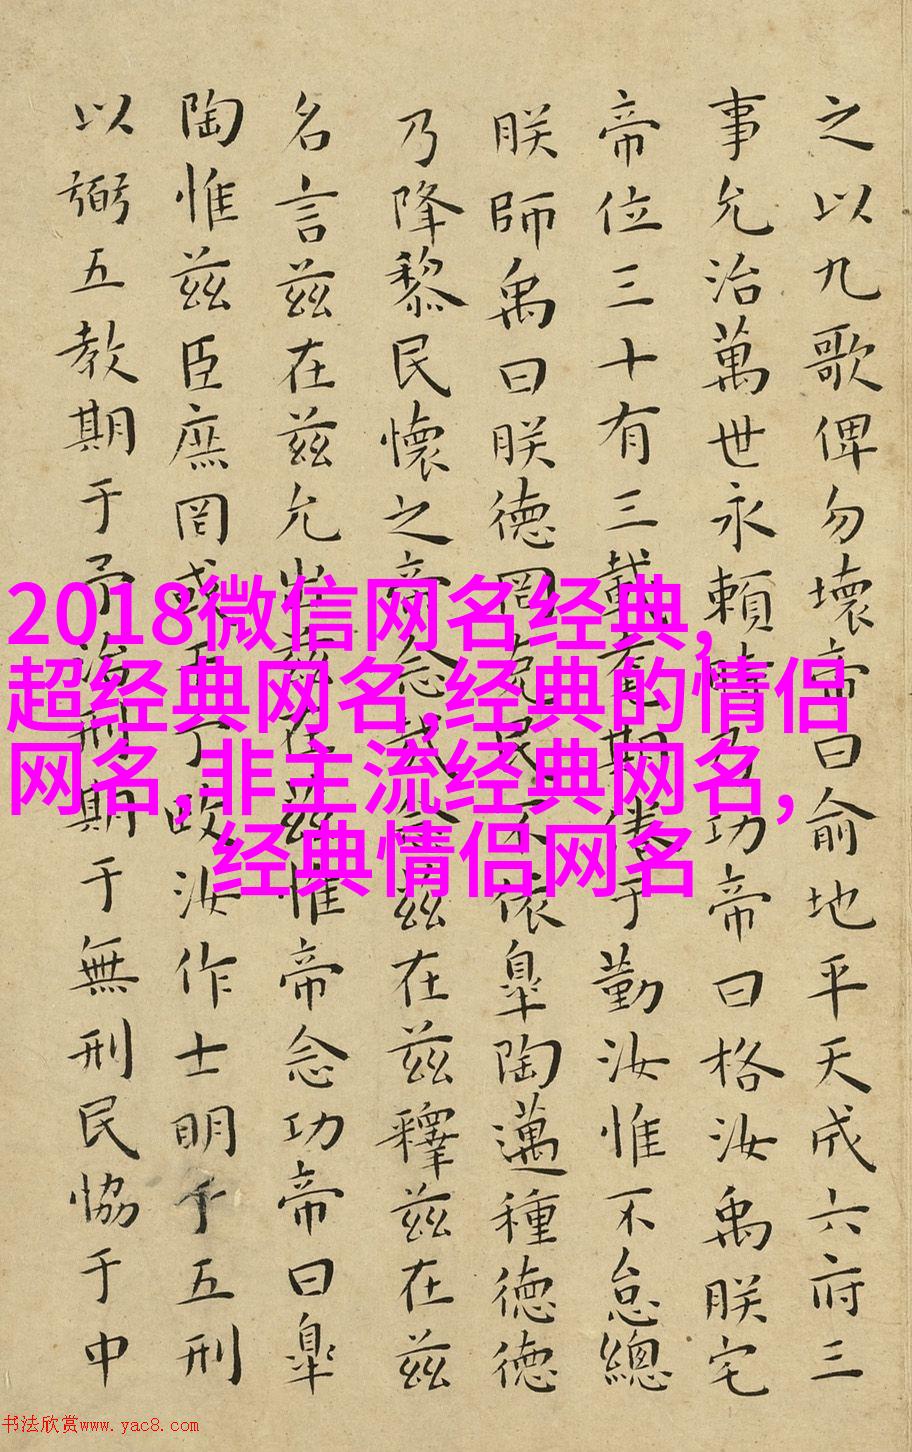 之以九歌俾勿壞帝曰俞地平天成六府三
事允治萬世永賴時乃功帝曰格汝禹朕宅
帝位三十有三載耄期倦于勤汝惟不怠總
朕師禹曰朕德罔克民不依皋陶邁種德德
乃降黎民懷之帝念哉念茲在茲釋茲在茲
名言茲在茲允出茲在茲惟帝念功帝曰皋
陶惟茲臣庶罔或干予政汝作士明于五刑
以弼五教期于予治刑期于無刑民協于中
2018微信网名经典,
超经典网名,经典的情侣
网名,非主流经典网名,
经典情侣网名
书法欣赏www.yac8.com